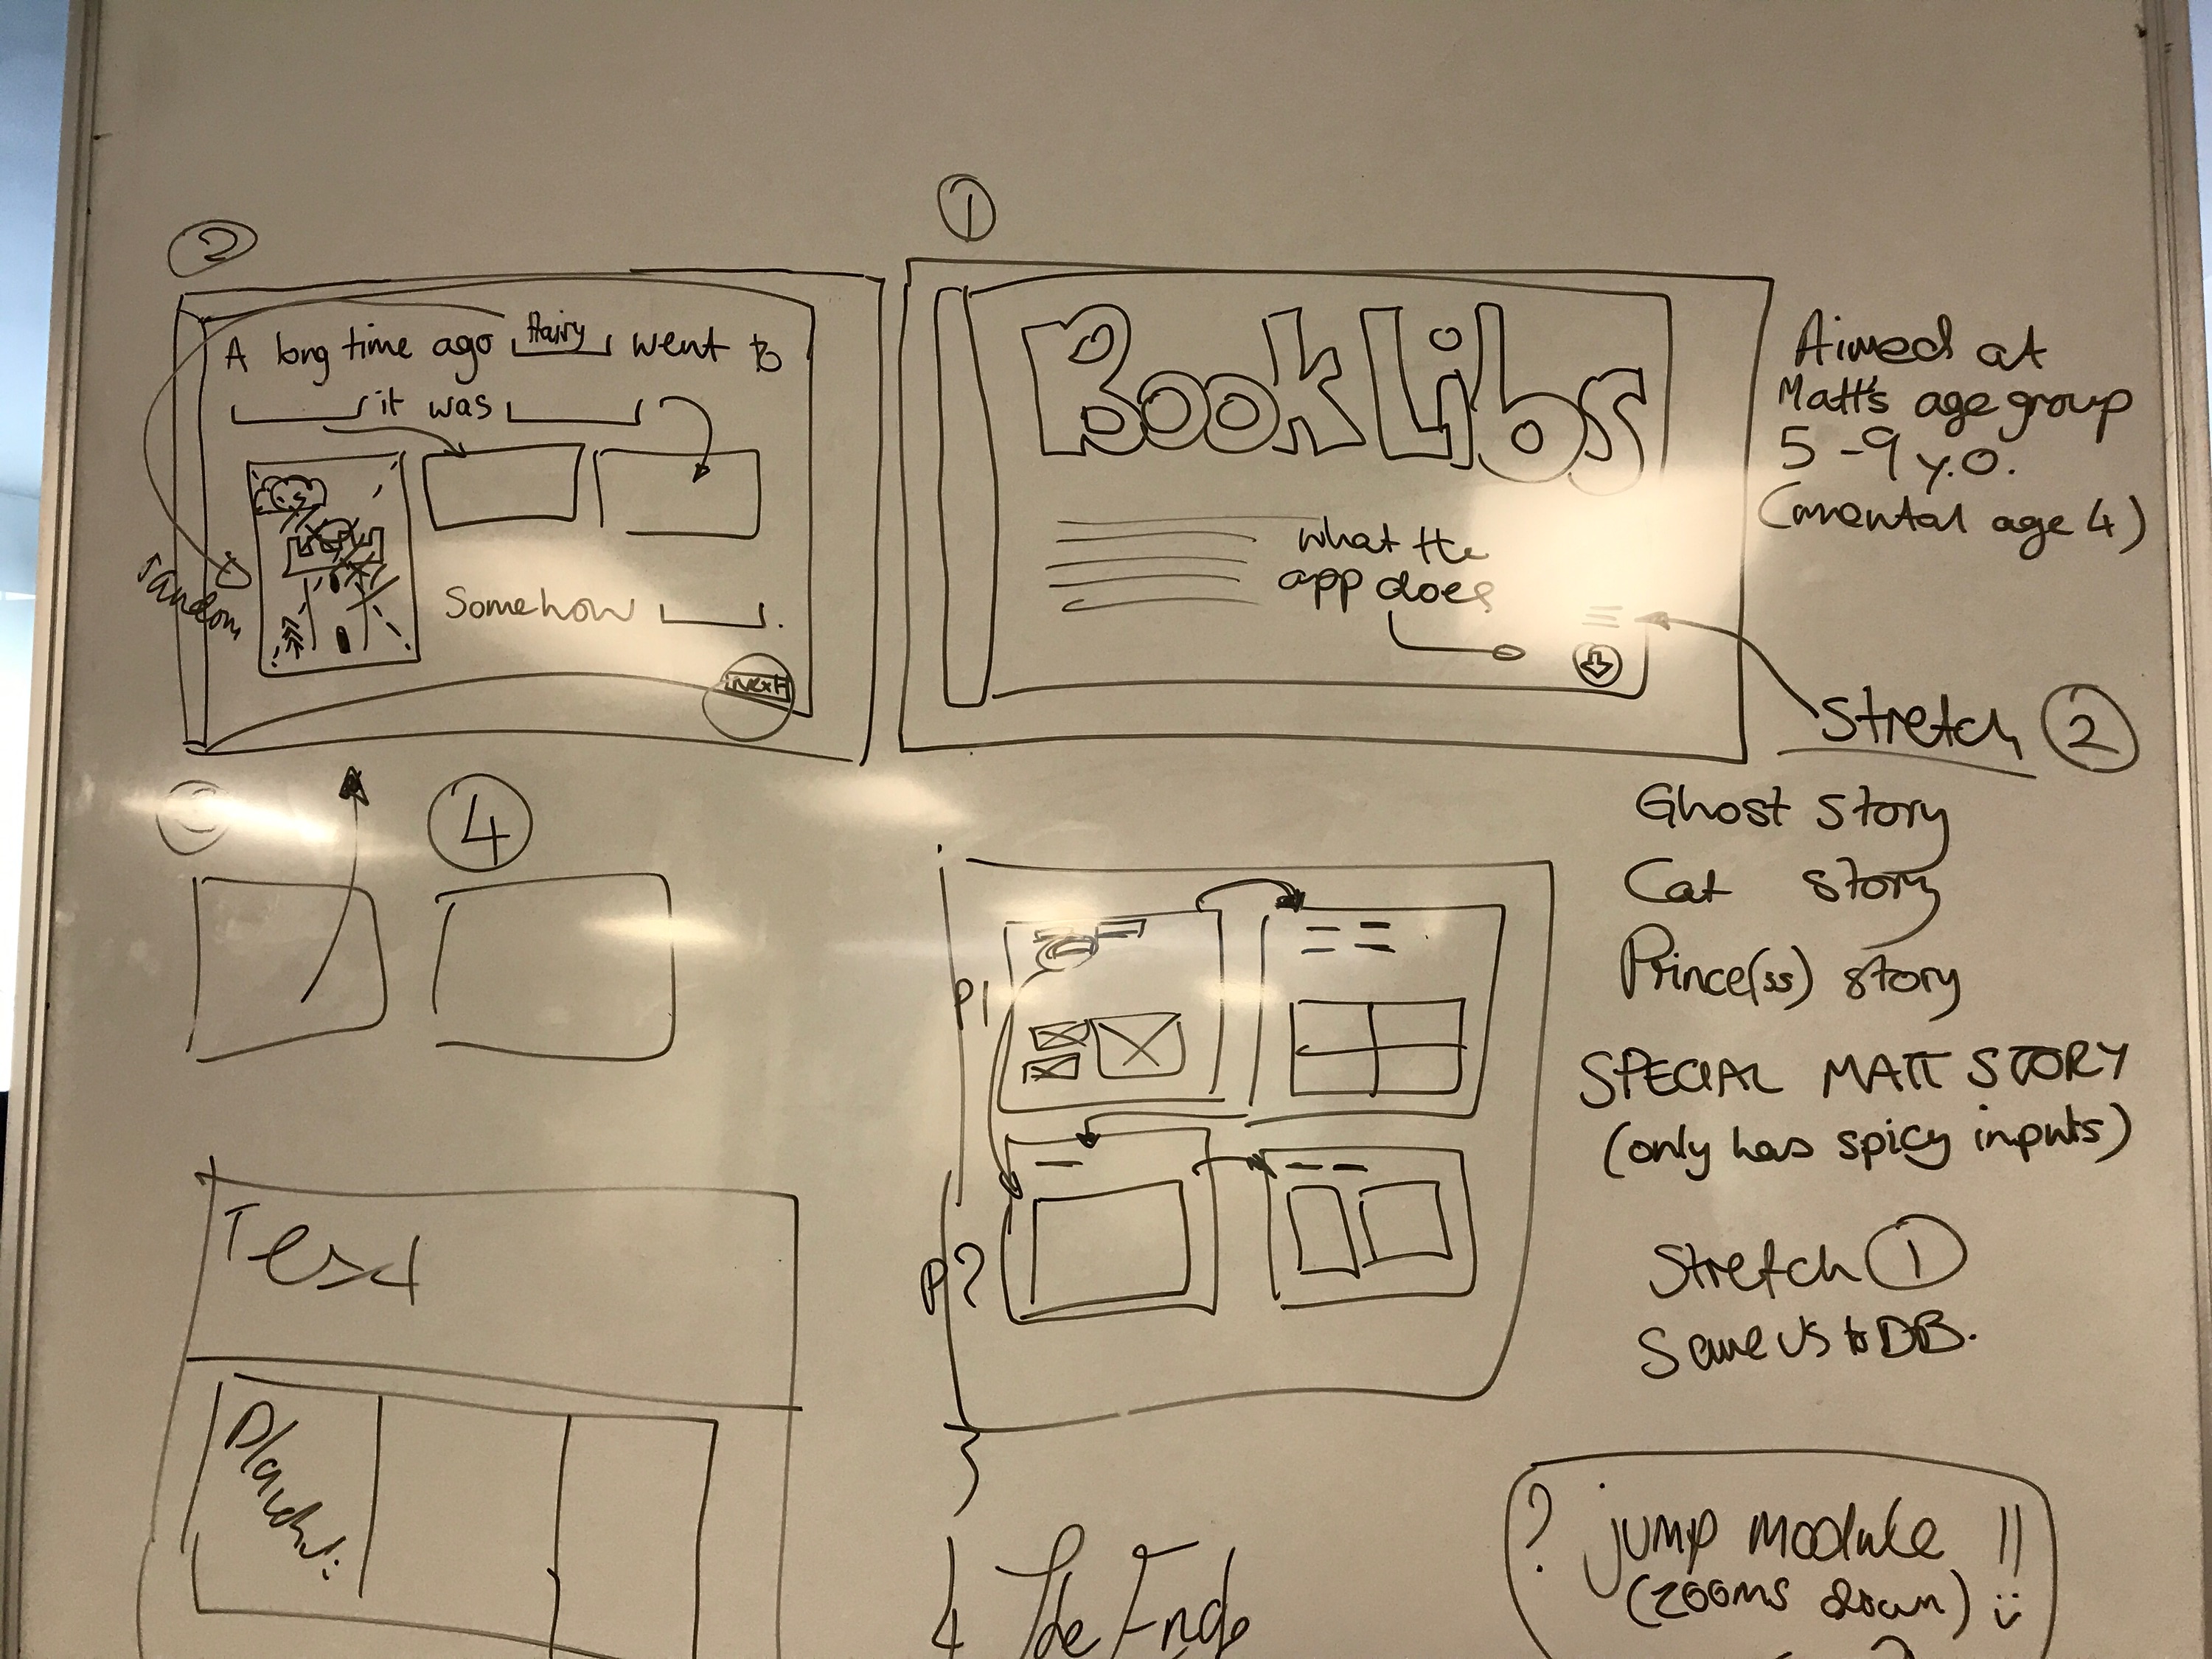 2
A long time ago Harry went to
it was
random
Somehow
Next
1
Book Libs
what the
app does
Aimed at
Matt's age group
5-9 y.o.
(mental age 4)
Stretch 2
Ghost story
Cat story
Prince(ss) story
SPECIAL MATT STORY
(only has spicy inputs)
Stretch 1
Save US to DB.
4
P1
P2
Text
The End
? jump module !!
(zooms down) :)